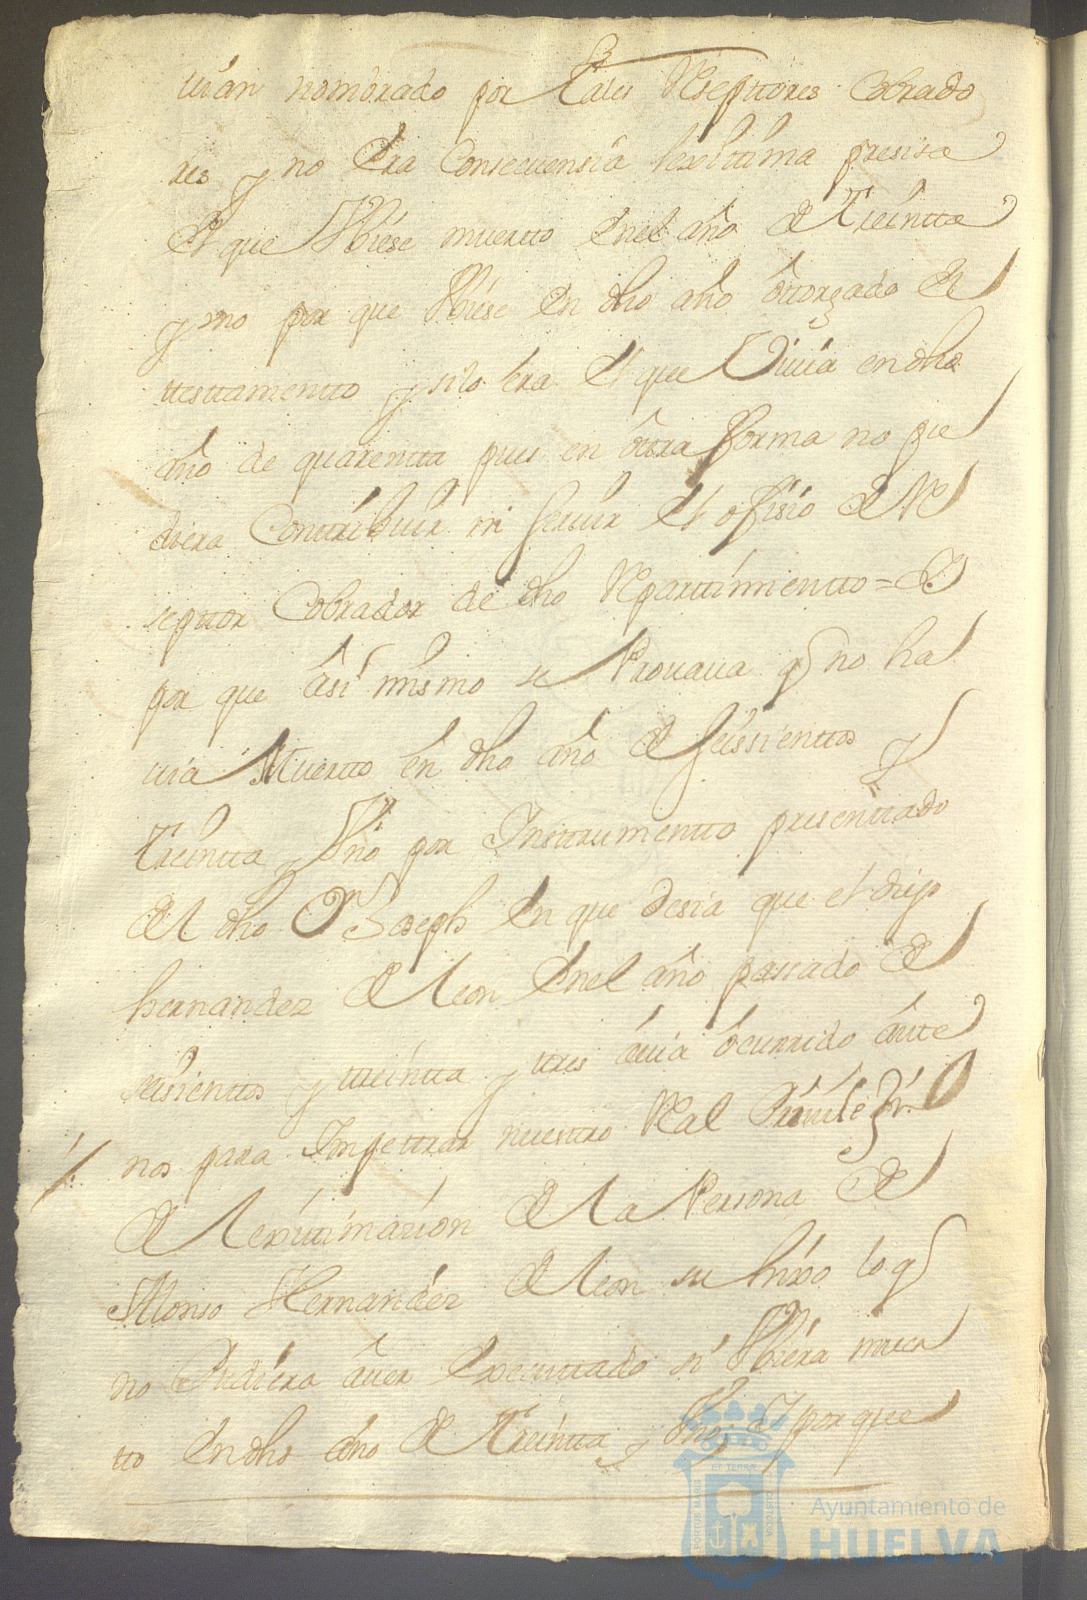 uian nombrado por tales Rseptores Cobrado
res y no era Consecuensia lexittima presisa
el que Vbiese muertto enel año de treintta
y uno por que Vbiese en dho año ôttorgado el
testtamentto y silo hera el que Viuia en dho
año de quarentta pues en ôttra forma no pu
diera Conttribuir ni seruir el ofisio de Re
septtor Cobrador de dho Reparttimientto = Y
por que âsi mismo se Prouaua q no ha
uia Muertto en dho año de seissienttos y
treintta y Vno por Instrumentto presenttado
del dho Dn Joseph en que desia que el dicho
hernandez de leon enel año passado de
seissienttos y treintta y tres âuia ôcurrido ântte
nos para Impettrar nuestro Real Priuilegio
de lexittimasion de la Persona de
Alonso Hernandez de leon su hixo lo q
no Pudiera âuer Executtado si Vbiera muer
tto en dho año de treintta y Vno, Y porque
Ayuntamiento de
HUELVA